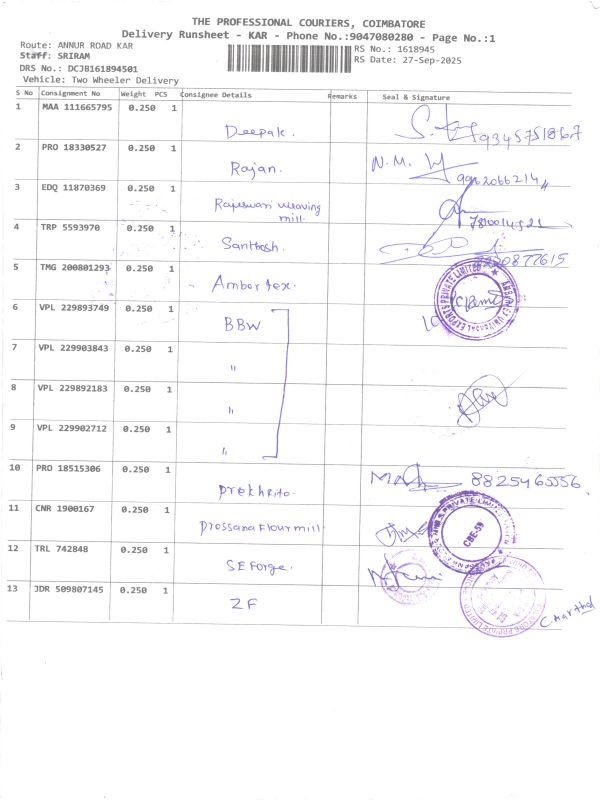 THE PROFESSIONAL COURIERS, COIMBATORE
Delivery Runsheet - KAR - Phone No.:9047080280 - Page No.:1
Route: ANNUR ROAD KAR
RS No.: 1618945
Staff: SRIRAM
RS Date: 27-Sep-2025
DRS No.: DCJB161894501
Vehicle: Two Wheeler Delivery
S No Consignment No Weight PCS Consignee Details Remarks Seal & Signature
1 MAA 111665795 0.250 1 Deepak. 9345751867
2 PRO 18330527 0.250 1 Rajan. N.M. 9962066214
3 EDQ 11870369 0.250 1 Rajeswari weaving
mill.
4 TRP 5593970 0.250 1 Santhosh.
5 TMG 200801293 0.250 1 Ambortex.
6 VPL 229893749 0.250 1 BBW
7 VPL 229903843 0.250 1 "
8 VPL 229892183 0.250 1 "
9 VPL 229902712 0.250 1 "
10 PRO 18515306 0.250 1 8825465556
11 CNR 1900167 0.250 1 Prossana Flour mill CBE-59
12 TRL 742848 0.250 1 SE Forge.
13 JDR 509807145 0.250 1 ZF